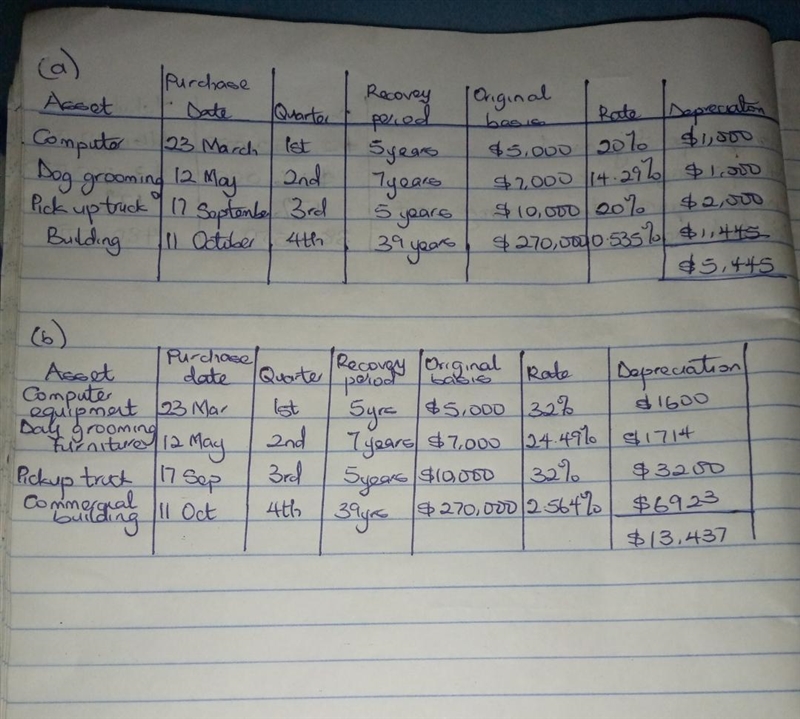 (a)
Asset Purchase Date Quarter Recovey period Original basis Rate Depreciation
Computer 23 March 1st 5 years $5,000 20% $1,000
Dog grooming 12 May 2nd 7 years $7,000 14.29% $1,000
Pick up truck 17 September 3rd 5 years $10,000 20% $2,000
Building 11 October 4th 39 years $270,000 0.535% $1,445
$5,445
(b)
Asset Purchase date Quarter Recovery period Original basis Rate Depreciation
Computer equipment 23 Mar 1st 5yrs $5,000 32% $1600
Day grooming furniture 12 May 2nd 7 years $7,000 24.49% $1714
Pickup truck 17 Sep 3rd 5 years $10,000 32% $3200
Commercial building 11 Oct 4th 39yrs $270,000 2.564% $6923
$13,437